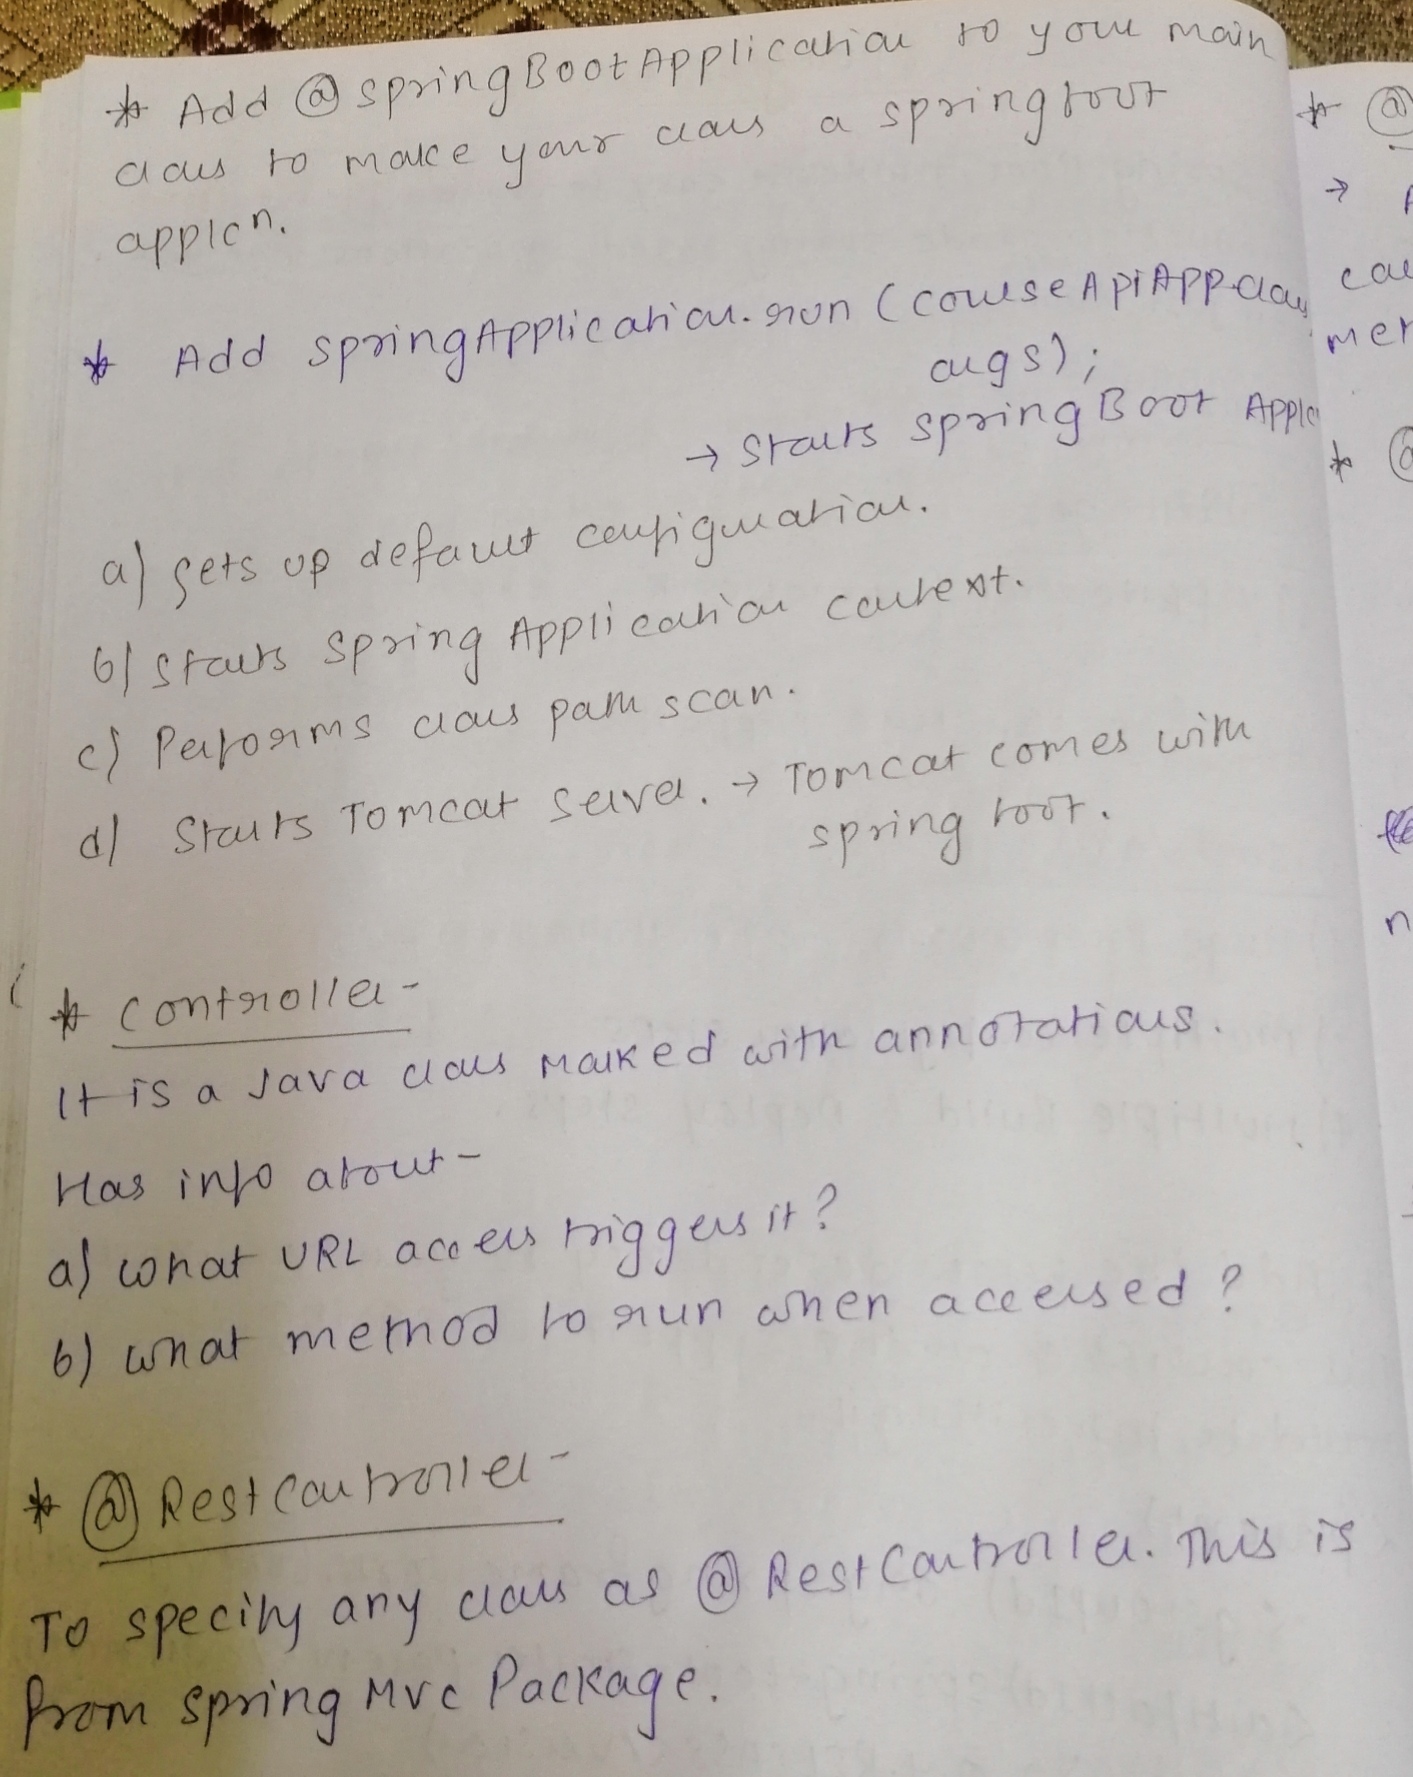 * Add @SpringBootApplication to your main
class to make your class a spring boot
applcn.
* Add SpringApplication.run (CourseApiApp.class,
args);
→ Starts Spring Boot Applc
a) Sets up default configuration.
b) Starts Spring Application context.
c) Performs class path scan.
d) Starts Tomcat server. → Tomcat comes with
spring boot.
* Controller -
It is a Java class marked with annotations.
Has info about -
a) What URL access triggers it?
b) What method to run when accessed?
* @RestController -
To specify any class as @RestController. This is
from spring MVC Package.